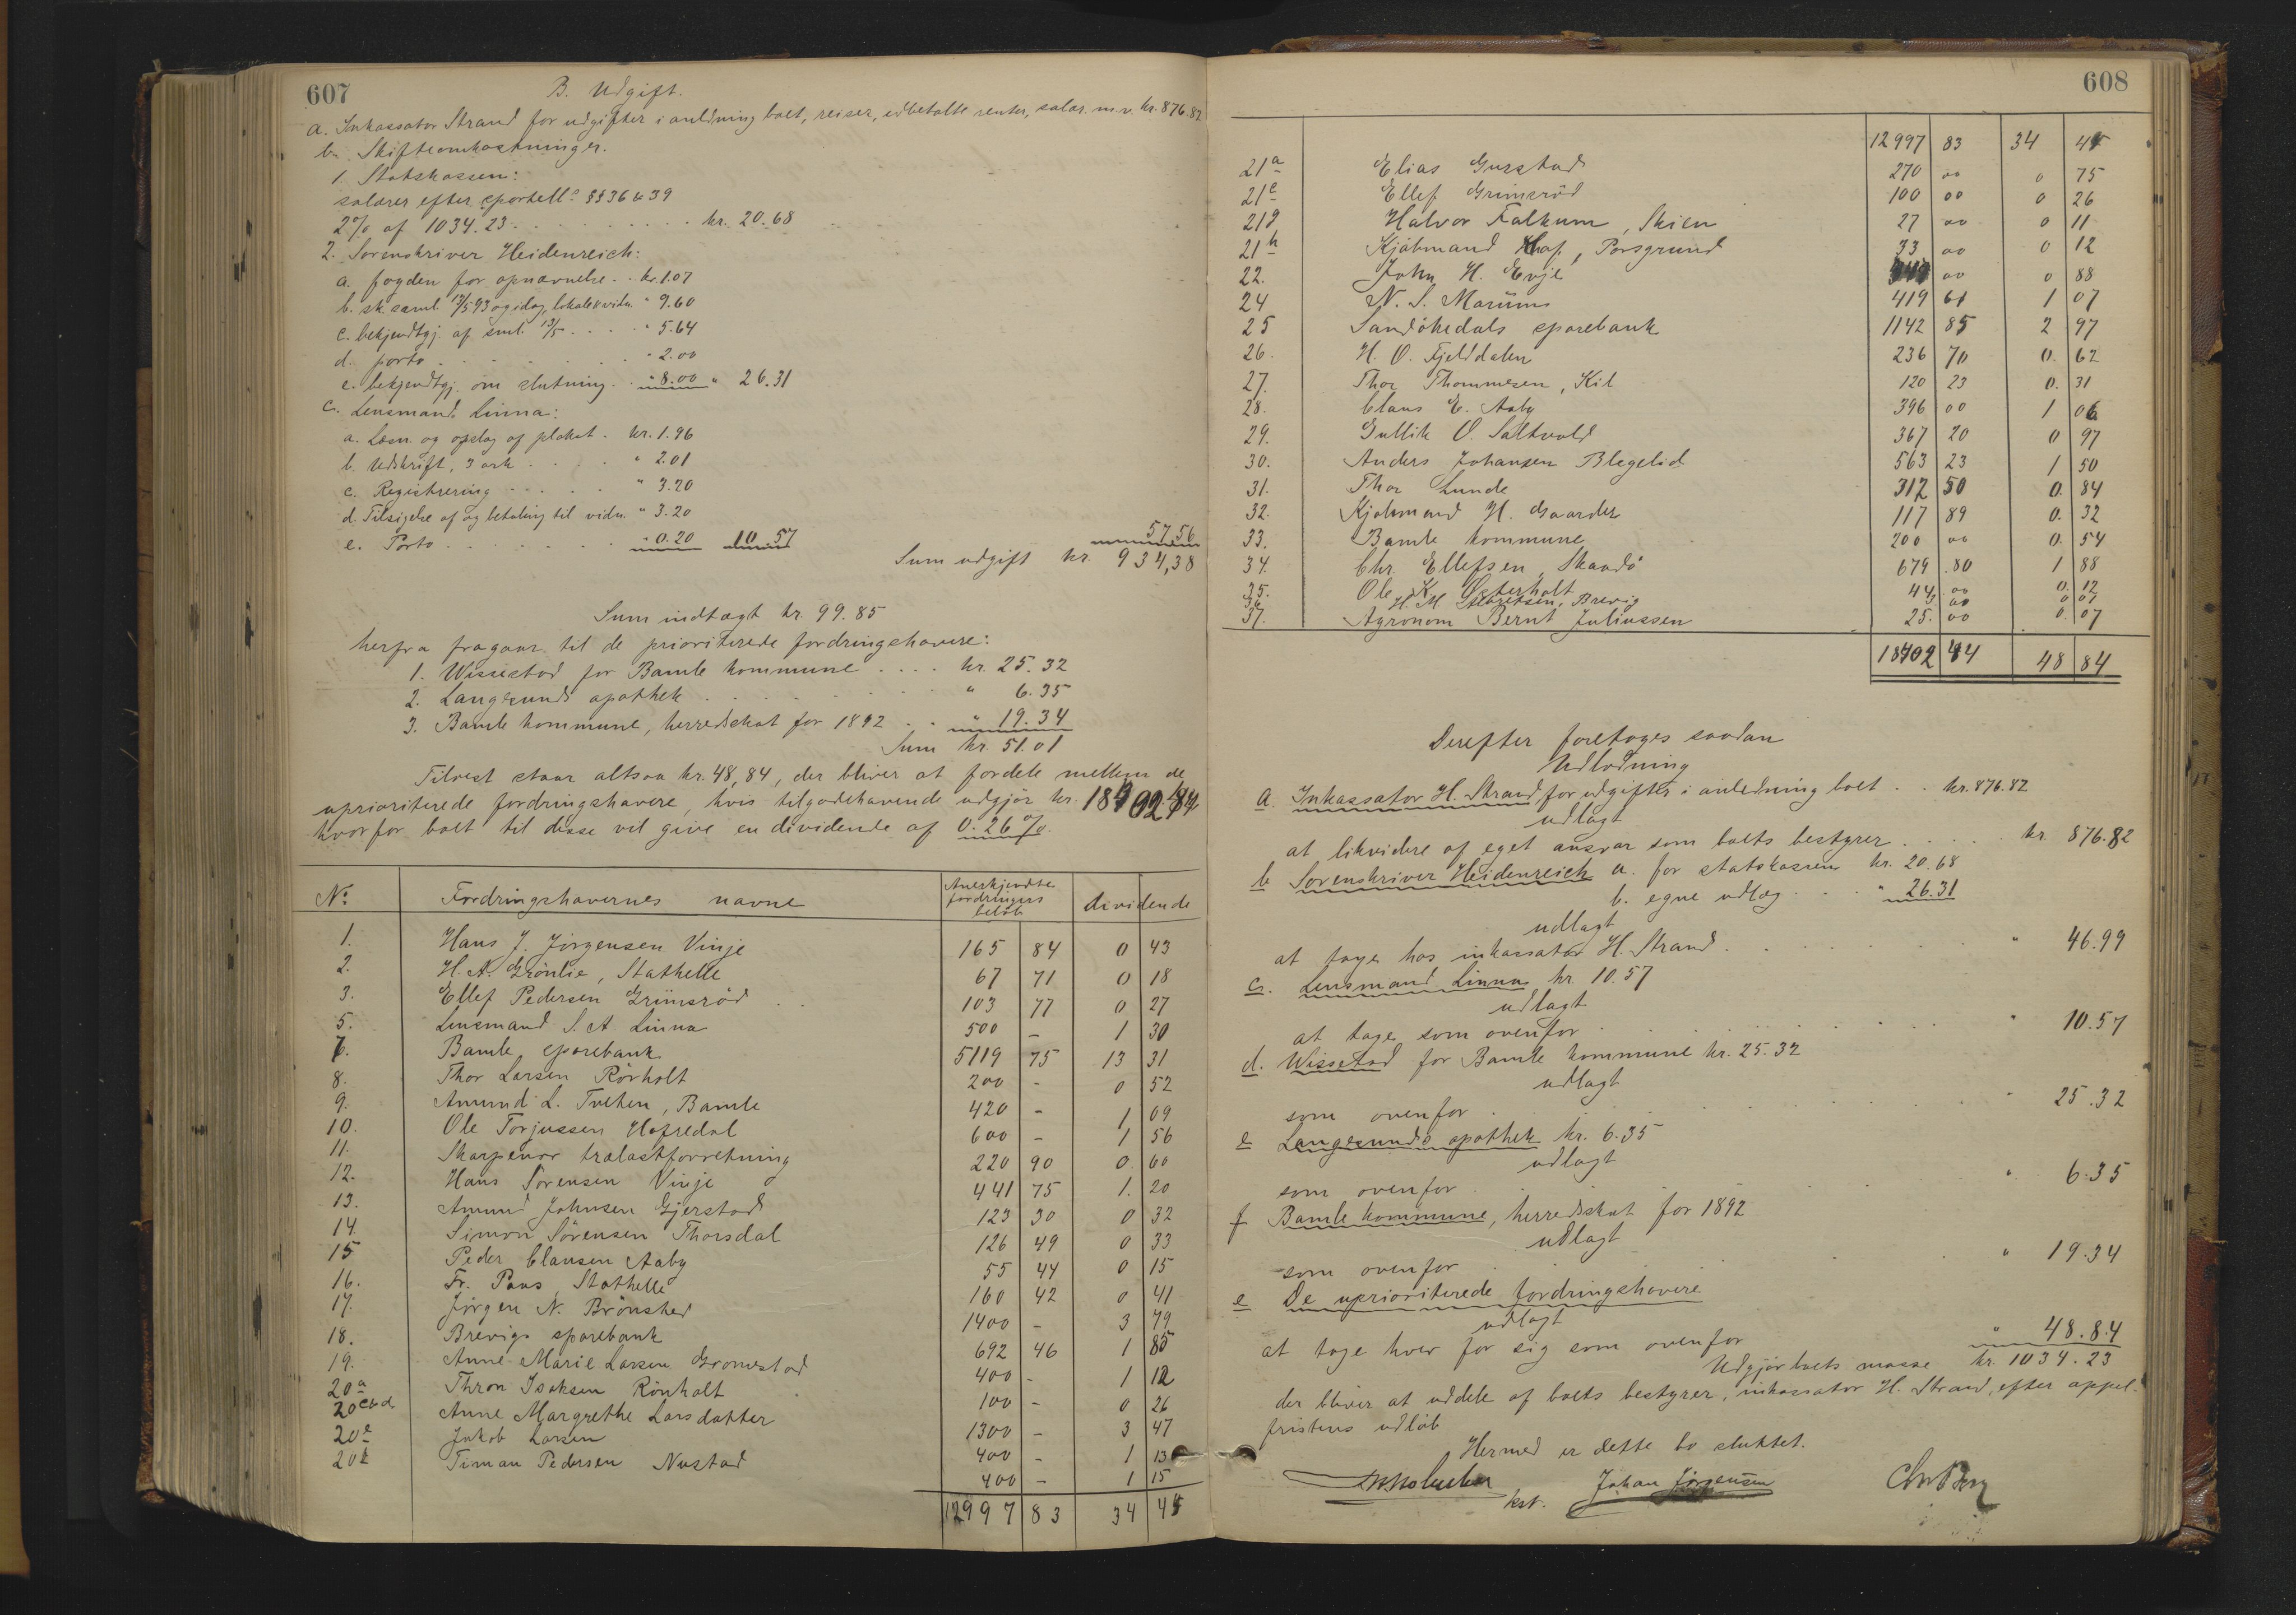 607
B. Udgift.
a. Inkassator Strand for udgifter i anledning boet, reiser, udbetalte renter, salær m.v. kr. 876.82
b. Skifteomkostninger.
1. Statskassen:
salærer efter sportell. §§ 36 & 39
2% af 1034.23 . . . . . . . . kr. 20.68
2. Sorenskriver Heidenreich:
a. fogden for opnævnelse . . kr. 1.07
b. sk. saml. 13/5 93 og idag, lokale & vidn. " 9.60
c. bekjendtgj. af saml. 13/5 . . . . " 5.64
d. porto . . . . . . . " 2.00
e. bekjendtgj. om slutning . . " 8.00 " 26.31
c. Lensmand Linna:
a. Læsn. og opslag af plakat . kr. 1.96
b. Udskrift, 3 ark . . . . " 2.01
c. Registrering . . . . . " 3.20
d. Tilsigelse af og betaling til vidn. " 3.20
e. Porto . . . . . . . " 0.20 10.57 57.56
Sum udgift kr. 934,38
Sum indtægt kr. 99.85
herfra fragaar til de prioriterede fordringshavere:
1. Wissestad for Bamle kommune . . . . kr. 25.32
2. Langesunds apothek . . . . . . . " 6.35
3. Bamle kommune, herredskat for 1892 . . " 19.34
Sum kr. 51.01
Tilrest staar altsaa kr. 48,84, der bliver at fordele mellem de
uprioriterede fordringshavere, hvis tilgodehavende udgjør kr. 18702 84
hvorfor boet til disse vil give en dividende af 0.26%.
No. Fordringshavernes navne Anerkjendte fordringers beløb dividende
1. Hans J. Jørgensen Vinje 165 84 0 43
2. H. A. Grönlie, Stathelle 67 71 0 18
3. Ellef Pedersen Grimsröd 103 77 0 27
5. Lensmand S. A. Linna 500 – 1 30
7. Bamle sparebank 5119 75 13 31
8. Thor Larsen Rörholt 200 – 0 52
9. Amund L. Tveten, Bamle 420 – 1 09
10. Ole Torjussen Hafredal 600 – 1 56
11. Skarpenor trælastforretning 220 90 0. 60
12. Hans Sørensen Vinje 441 75 1. 20
13. Amund Johnsen Gjerstad 123 30 0 32
14. Simon Sörensen Thorsdal 126 49 0 33
15 Peder Clausen Aaby 55 44 0 15
16. Fr. Paus Stathelle 160 42 0 41
17. Jörgen N. Brönsted 1400 – 3 79
18. Brevigs sparebank 692 46 1 85
19. Anne Marie Larsen Gromstad 400 – 1 12
20a Thron Isaksen Rönholt 100 – 0 26
20c&d Anne Margrethe Larsdatter 1300 – 3 47
20e Jakob Larsen 400 – 1 13
20k Timan Pedersen Nustad 400 – 1 15
12997 83 34 45
608
12997 83 34 45
21a Elias Gurstad 270 00 0 75
21e Ellef Grimsröd 100 00 0 26
21g Halvor Falkum, Skien 27 00 0 11
21h Kjöbmand Klaf, Porsgrund 33 00 0 12
22. John H. Evje 00 0 88
24 N. S. Marum 419 61 1 07
25 Sandökedals sparebank 1142 85 2 97
26. H. O. Fjelldalen 236 70 0. 62
27. Thor Thommesen, Kil 120 23 0. 31
28. Claus E. Aaby 396 00 1 06
29. Gullik O. Saltvold 367 20 0 97
30. Anders Johansen Blegelid 563 23 1 50
31. Thor Lunde 312 50 0. 84
32. Kjøbmand H. Gaarder 117 89 0. 32
33. Bamle kommune 200 00 0. 54
34. Chr. Ellefsen, Skaudö 679 80 1 88
35. Ole K. Osterholt 44 00 0. 12
36 H. M. Brevig 00 0 01
37. Agronom Bernt Juliussen 25. 00 0. 07
18702 84 48 84
Derefter foretoges saadan
Udlodning
a. Inkassator H. Strand for udgifter i anledning boet . . kr. 876.82
udlagt
at likvidere af eget ansvar som boets bestyrer . . . . kr 876.82
b Sorenskriver Heidenreich a. for statskassen kr. 20.68
b. egne udlæg . . . " 26.31
udlagt
at tage hos inkassator H. Strand . . . . . . . " 46.99
c. Lensmand Linna kr. 10.57
udlagt
at tage som ovenfor . . . . . . " 10.57
d. Wissestad for Bamle kommune kr. 25.32
udlagt
som ovenfor . . . . . . . " 25.32
e Langesunds apothek kr. 6.35
udlagt
som ovenfor . . . . . . " 6.35
f Bamle kommune, herredskat for 1892
udlagt
som ovenfor . . . . . . " 19.34
e De uprioriterede fordringshavere
udlagt
at tage hver for sig som ovenfor " 48.84
Udgjør boets masse kr. 1034.23
der bliver at uddele af boets bestyrer, inkassator H. Strand, efter appel-
fristens udløb
Hermed er dette bo sluttet.
kst. Johan Jörgensen